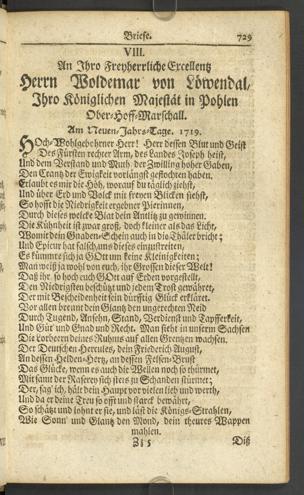 Briefe. 729
VIII.
An Ihro Freyherrliche Excellentz
Herrn Woldemar von Löwendal,
Ihro Königlichen Majestät in Pohlen
Ober-Hoff-Marschall.
Am Neuen-Jahrs-Tage. 1719.
HOch-Wohlgebohrener Herr! Herr dessen Blut und Geist
Des Fürsten rechter Arm, des Landes Joseph heist,
Und dem Verstand und Muth der Zwilling hoher Gaben,
Den Crantz der Ewigkeit vorlängst geflochten haben.
Erlaubt es mir die Höh, worauf du täglich ziehst,
Und über Erd und Volck mit freyen Blicken siehst,
So hofft die Niedrigkeit ergebner Pierinnen,
Durch dieses welcke Blat dein Antlitz zu gewinnen.
Die Kühnheit ist zwar groß, doch kleiner als das Licht,
Womit dein Gnaden-Schein auch in die Thäler bricht;
Und Epicur hat falsch, uns dieses einzustreiten,
Es kümmte sich ja GOtt um keine Kleinigkeiten;
Man weiß ja wohl von euch, ihr Grossen dieser Welt!
Daß ihr, so hoch euch GOtt auf Erden vorgestellt,
Den Niedrigsten beschützt und jedem Trost gewähret,
Der mit Bescheidenheit sein dürftig Glück erkläret.
Vor allen brennt dein Glantz den ungerechten Neid
Durch Tugend, Ansehn, Stand, Verdienst und Tapfferkeit,
Und Gür und Gnad und Recht. Man sieht in unserm Sachsen
Die Lorbeern deines Ruhms auf allen Grentzen wachsen.
Der Deutschen Hercules, dein Friederich August,
An dessen Helden-Hertz, an dessen Felsen-Brust
Das Glücke, wenn es auch die Wellen noch so thürmet,
Mit samt der Raserey sich stets zu Schanden stürmet;
Der, sag' ich, hält dein Haupt vor vielen lieb und werth,
Und da er deine Treu so offt und starck bewährt,
So schätzt und lohnt er sie, und läst die Königs-Strahlen,
Wie Sonn' und Glantz den Mond, dein theures Wappen
mahlen.
Zz 5 Diß